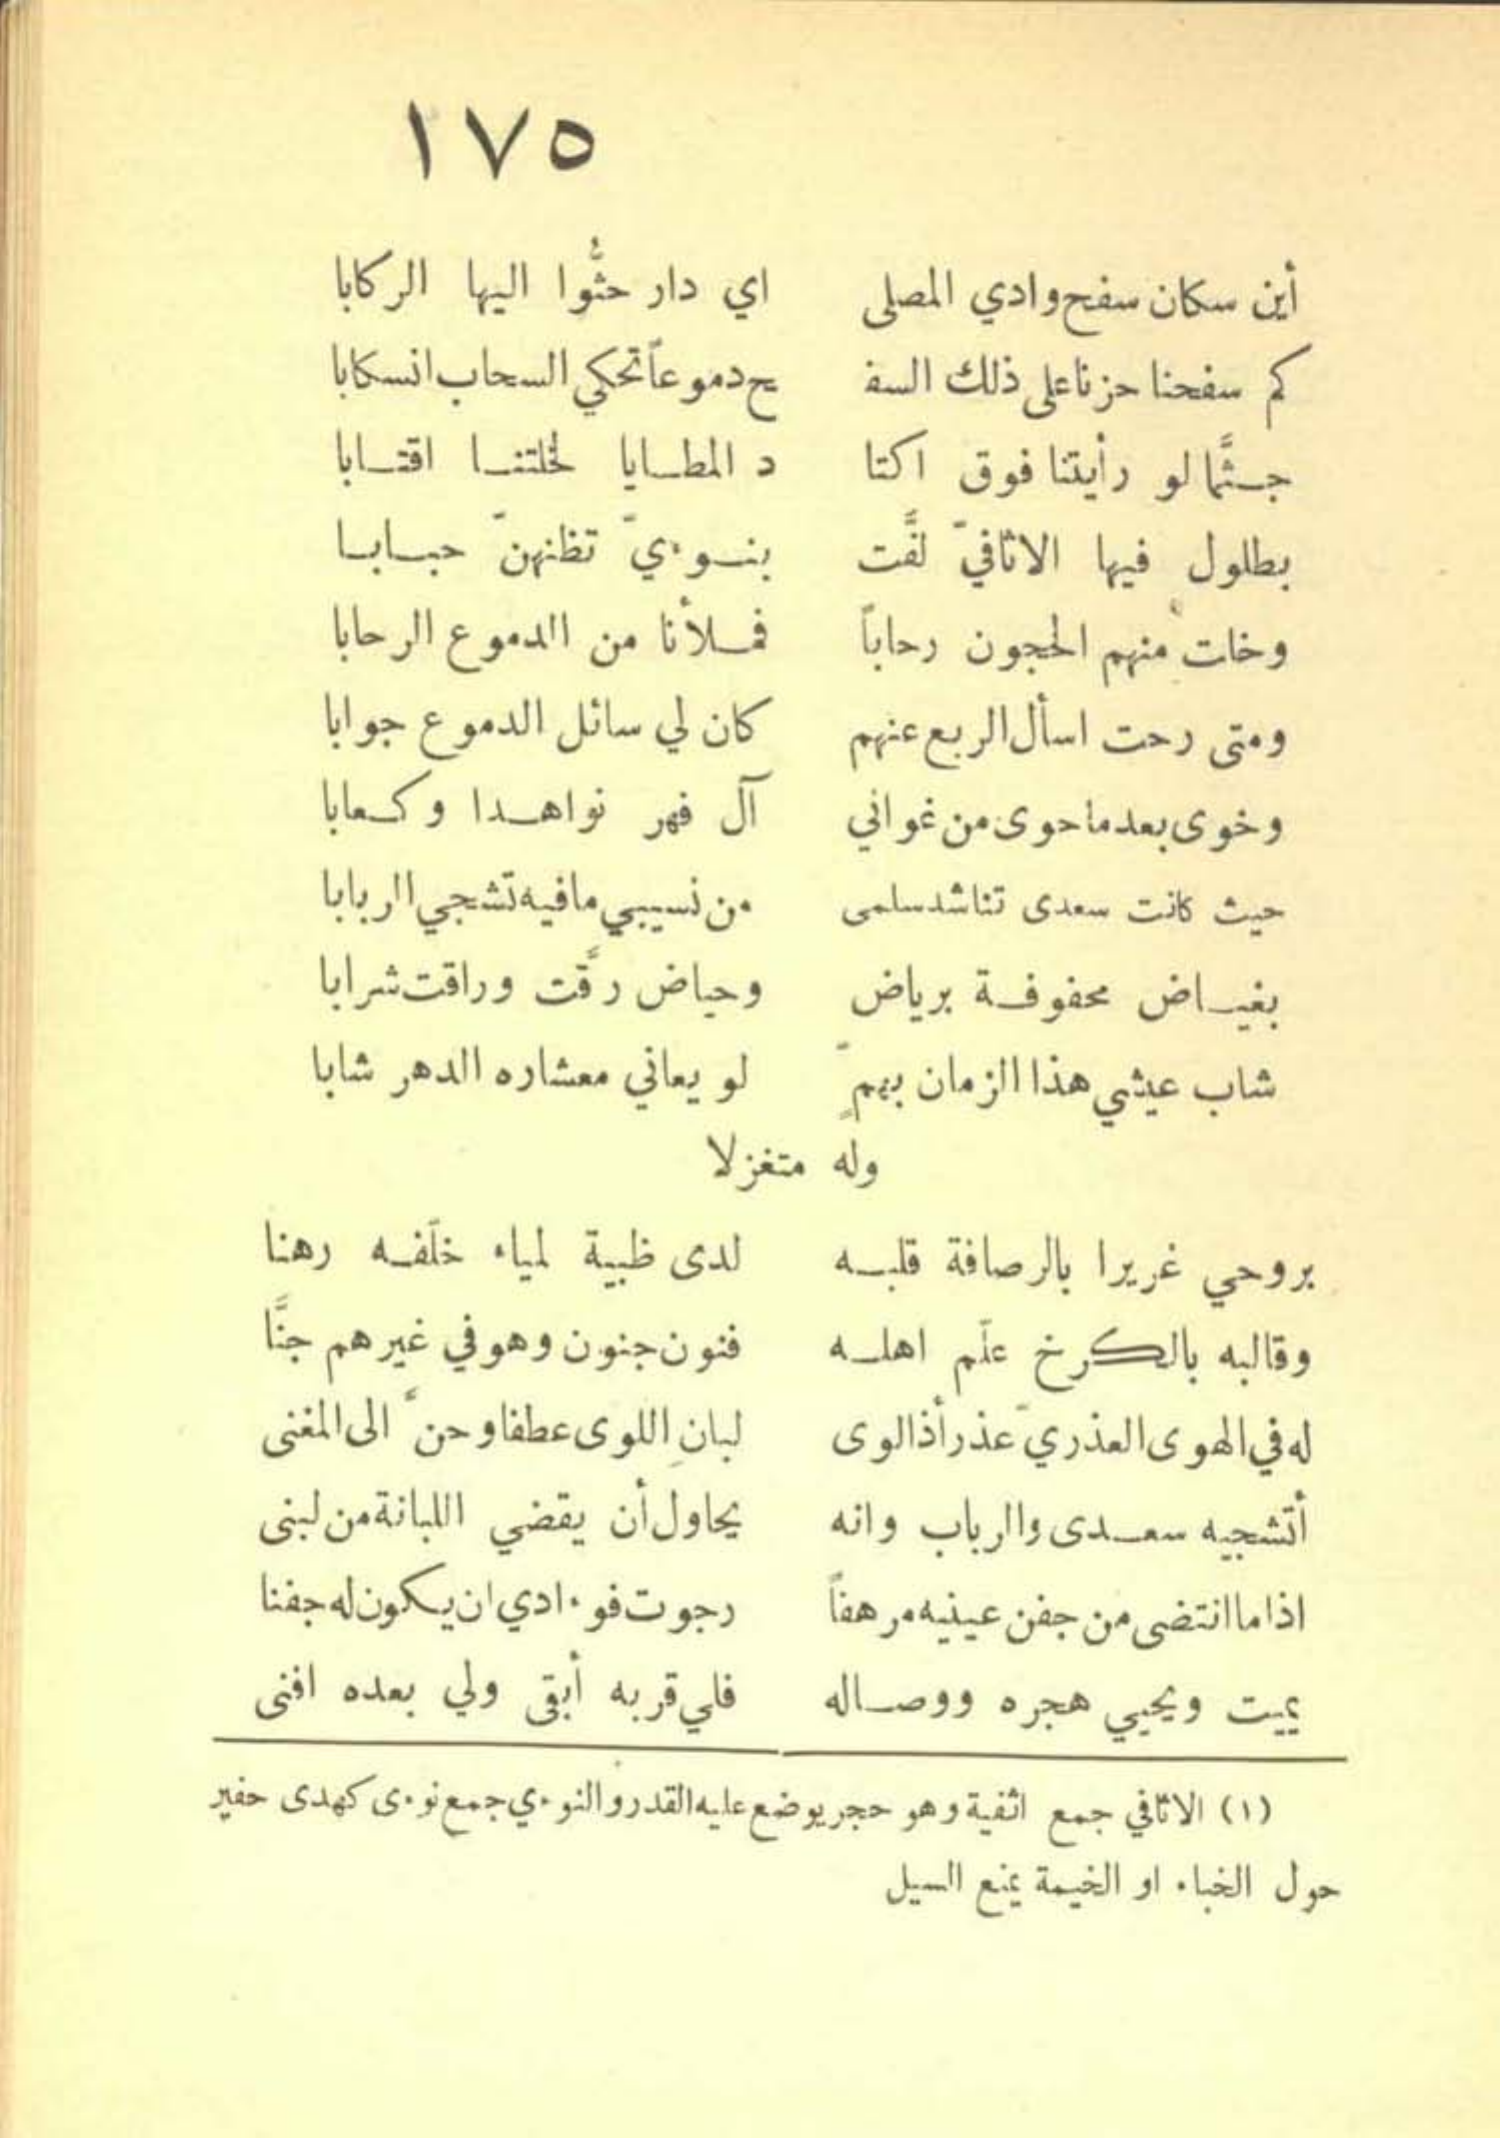 ١٧٥
أين سكان سفح وادي المصلى اي دار حثُّوا اليها الركابا
كم سفحنا حزنا على ذلك السفـ ـح دموعاً تحكي السحاب انسكابا
جثَّما لو رأيتنا فوق اكتا د المطايا لخلتنا اقتابا
بطلول فيها الاثافيّ لفَّت بنوءيّ تظنهنّ حبابا
وخات منهم الحجون رحاباً فملأنا من الدموع الرحابا
ومتى رحت اسأل الربع عنهم كان لي سائل الدموع جوابا
وخوى بعد ما حوى من غواني آل فهر نواهدا وكعابا
حيث كانت سعدى تناشد سلمى من نسيبي ما فيه تشجي الربابا
بغياض محفوفة برياض وحياض رقَّت وراقت شرابا
شاب عيشي هذا الزمان بهمّ لو يعاني معشاره الدهر شابا
وله متغزلا
بروحي غريرا بالرصافة قلبه لدى ظبية لمياء خلّفه رهنا
وقالبه بالكرخ علّم اهله فنون جنون وهو في غيرهم جنَّا
له في الهوى العذريّ عذر أذا لوى لبانِ اللوى عطفا وحنَّ الى المغنى
أتشجيه سعدى والرباب وانه يحاول أن يقضي اللبانة من لبنى
اذا ما انتضى من جفن عينيه مرهفاً رجوت فوءادي ان يكون له جفنا
يميت ويحيي هجره ووصاله فلي قربه أبقى ولي بعده افنى
(١) الاثافي جمع اثفية وهو حجر يوضع عليه القدر والنوءي جمع نوءى كهدى حفير
حول الخباء او الخيمة يمنع السيل